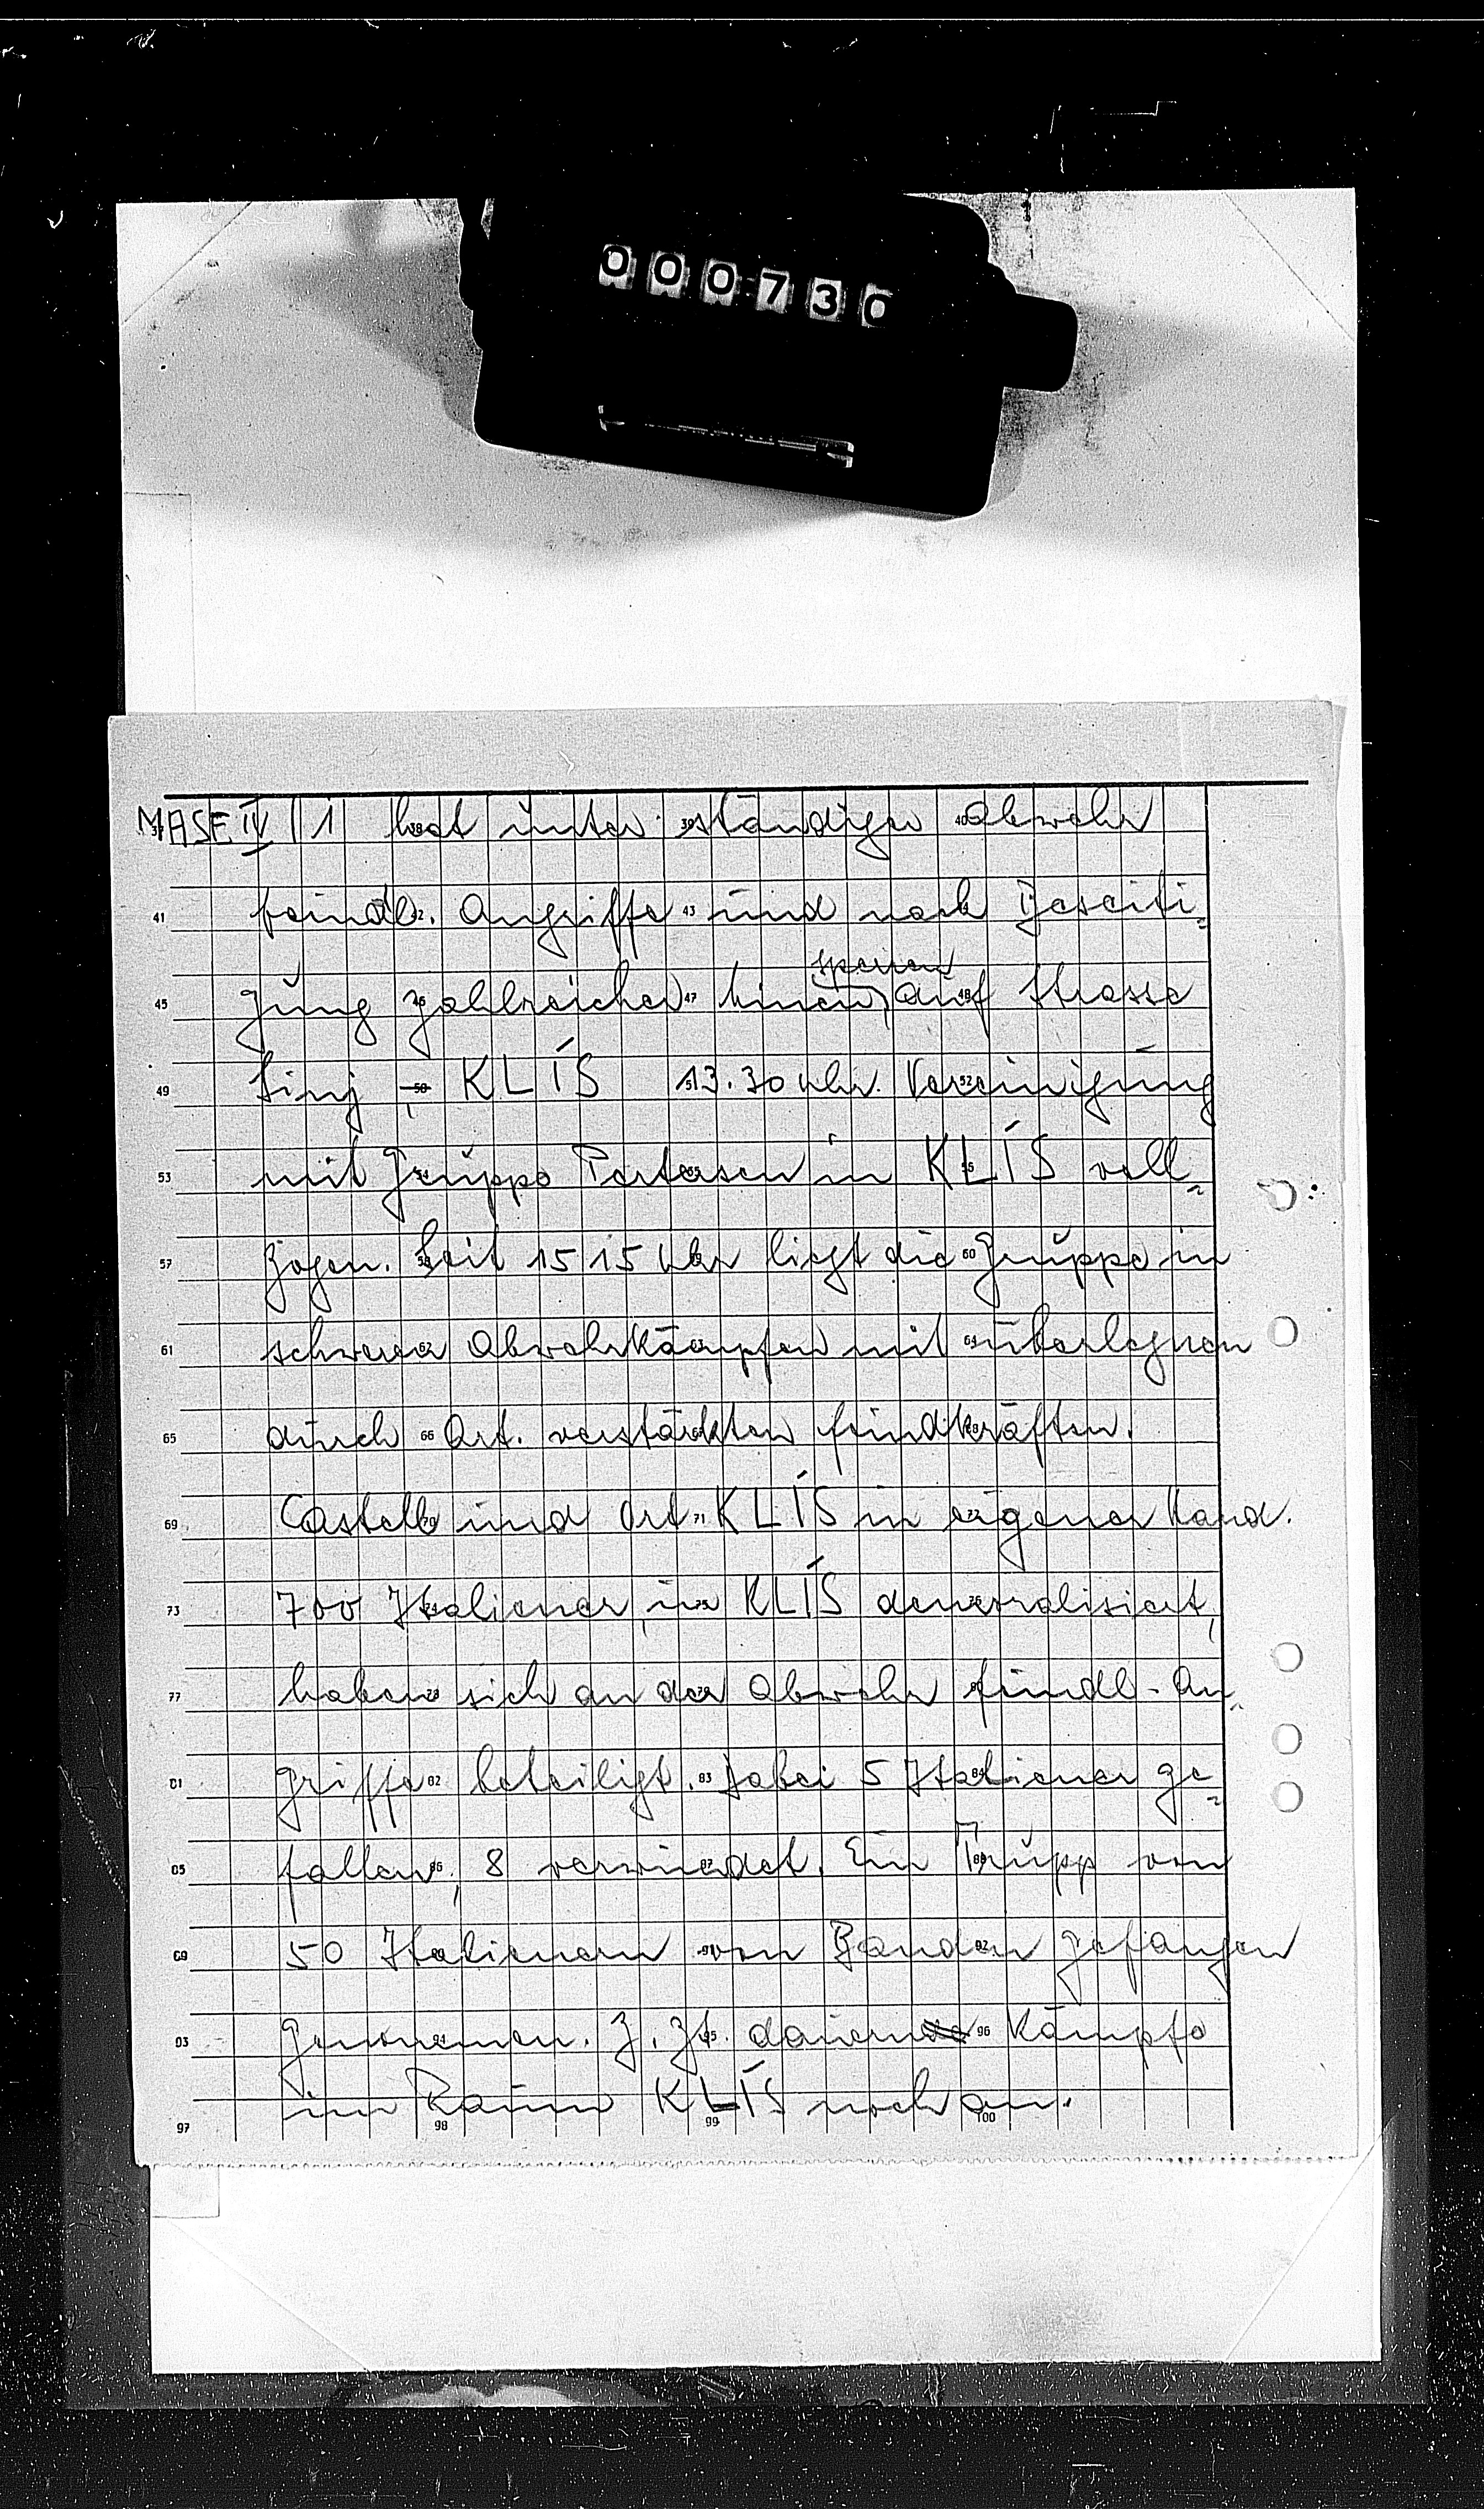 000730
MASE IV 1 hat unter ständiger Abwehr
feindl. Angriffe und nach Beseiti=
gung zahlreicher Minen sperren auf Strasse
Sinj - KLÍS 13.30 Uhr Vereinigung
mit Gruppe Petersen in KLÍS voll=
zogen. Seit 15 15 Uhr liegt die Gruppe in
schweren Abwehrkämpfen mit überlegnen
durch Art. verstärkten Feindkräften.
Castell und Ort KLÍS in eigener Hand.
700 Italiener, in KLÍS demoralisiert,
haben sich an der Abwehr feindl. An=
griffe beteiligt. Dabei 5 Italiener ge=
fallen, 8 verwundet. Ein Trupp von
50 Italienern von Banden gefangen
genommen. Z. Zt. dauern Kämpfe
im Raum KLÍS noch an.
37 38 39 40
41 42 43
45 46 47 48
49 50 51 52
53 54 55 56
57 58 60
61 62 64
65 66
69 70 71 72
73 74 75 76
77
81 82 83 84
85 86 87 88
89 91 92
93 94 95 96
97 98 99 100